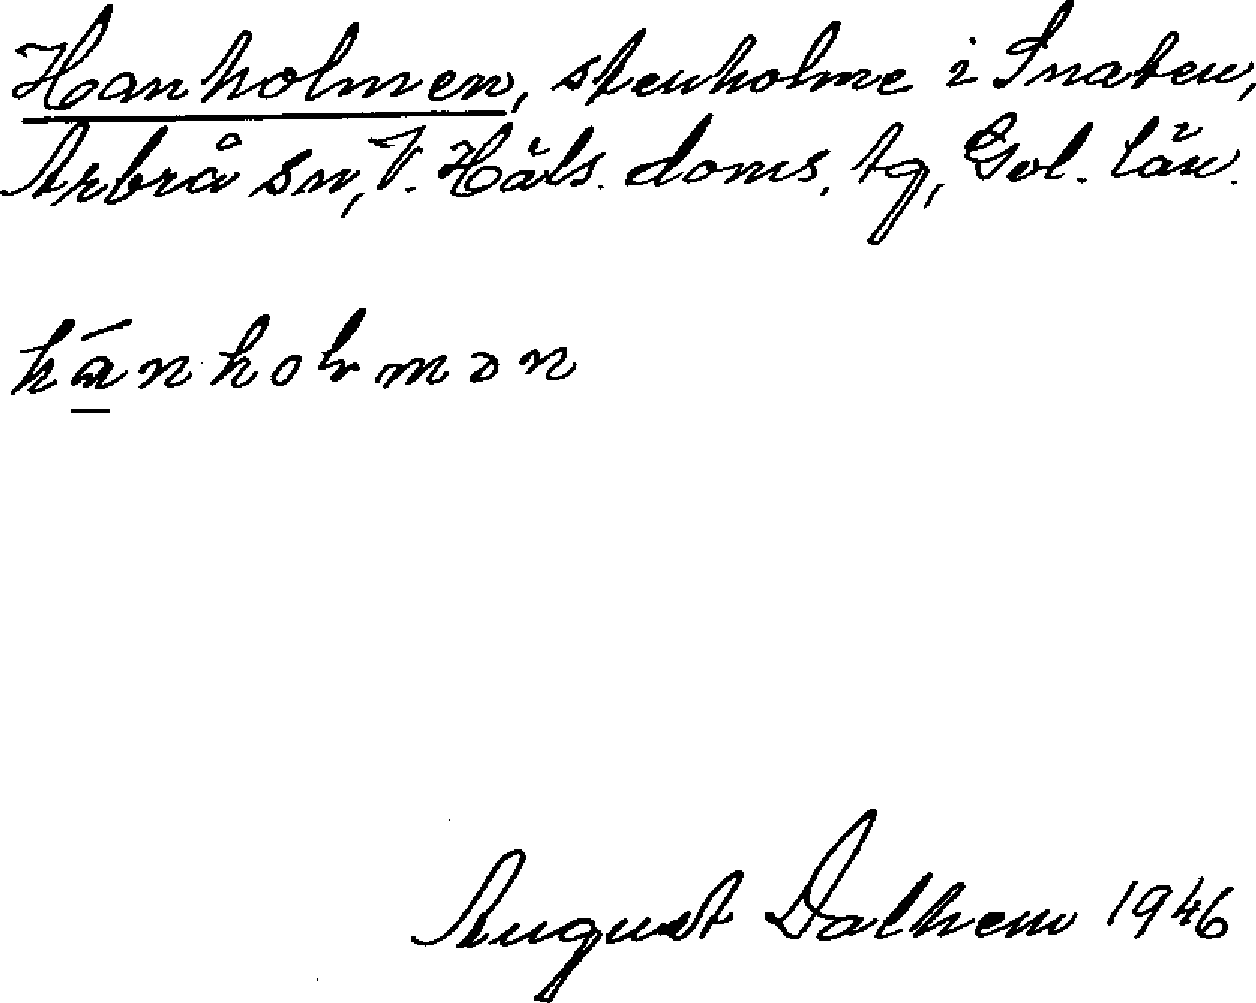 Hanholmen, stenholme i Snaten,
Arbrå sn, V. Häls. doms. tg, Gvl. län.
hánholmən
August Dalhem 1946